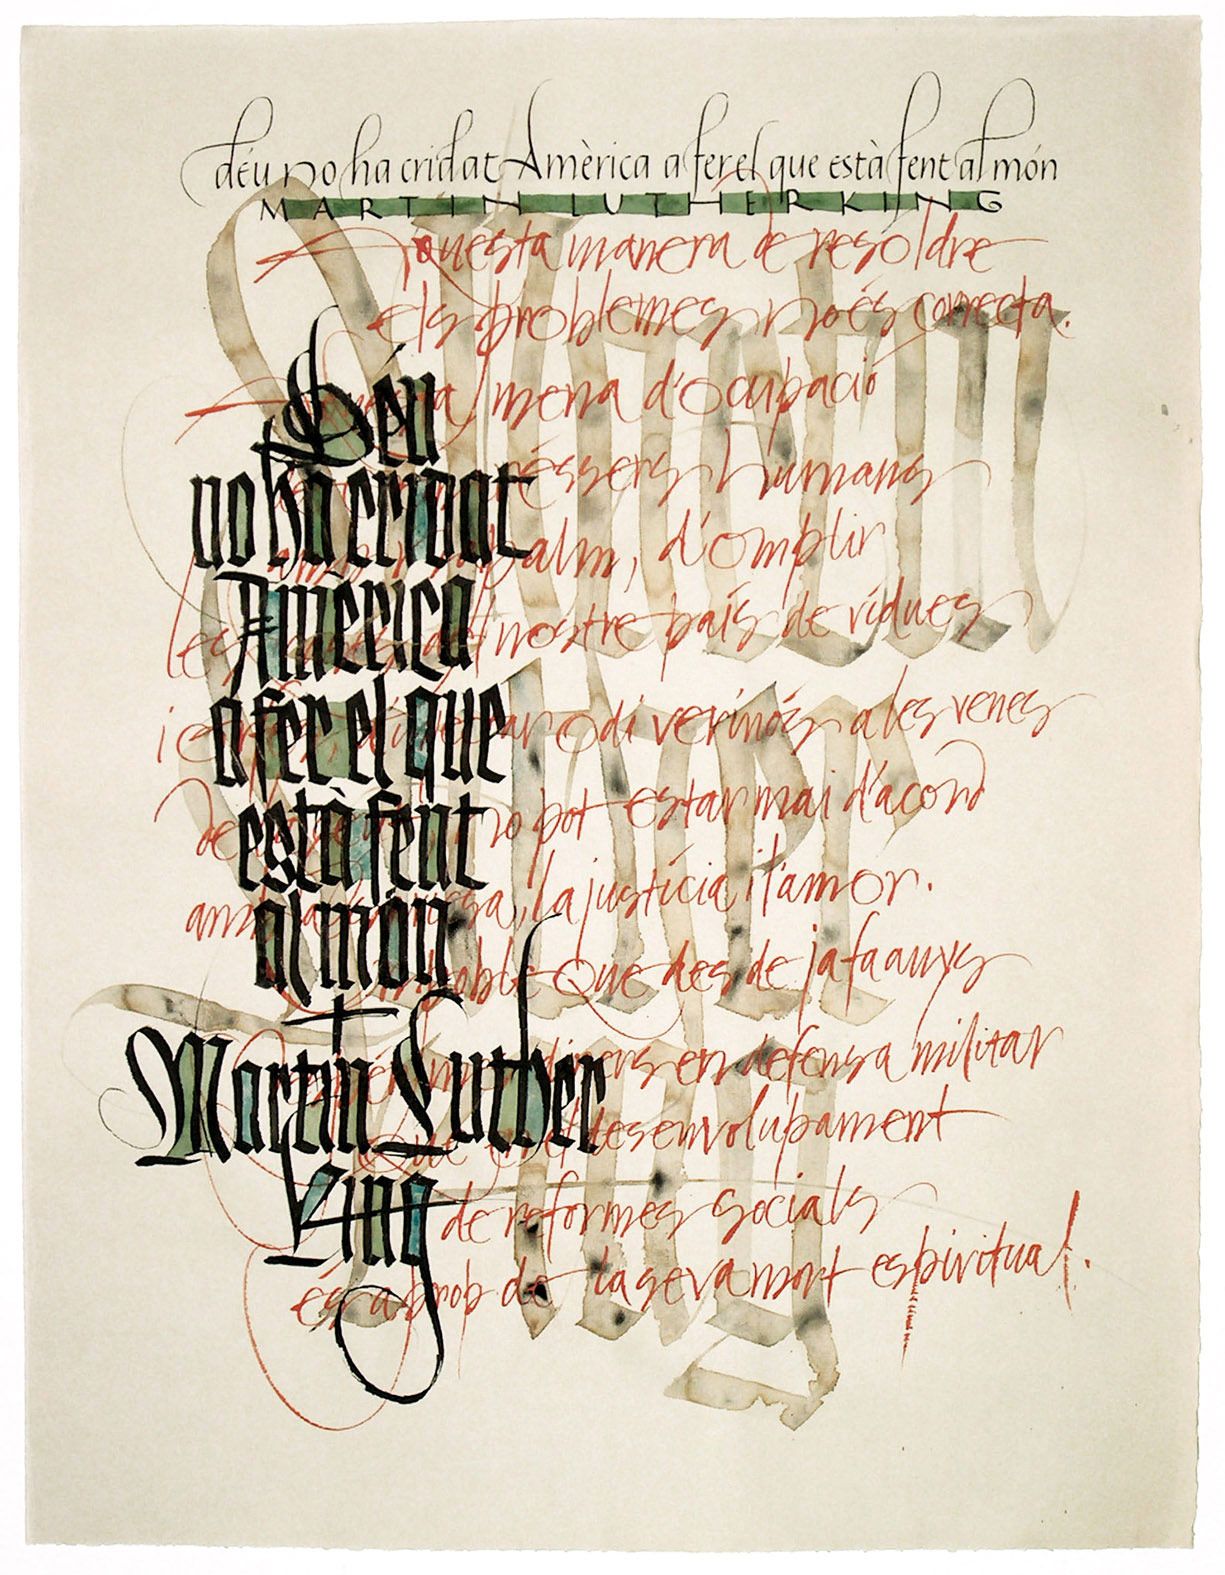 déu no ha cridat Amèrica a fer el que està fent al món
MARTIN LUTHER KING
Aquesta manera de resoldre
els problemes no és correcta.
Aquesta mena d'ocupació
éssers humans
napalm, d'omplir
les cases del nostre país de vídues
i orfes, d'injectar odi verinós a les venes
de no pot estar mai d'acord
amb la saviesa, la justícia i l'amor.
poble que des de ja fa anys
diners en defensa militar
que en el desenvolupament
de reformes socials
és a prop de la seva mort espiritual.
Déu
no ha cridat
Amèrica
a fer el que
està fent
al món
Martin Luther
King
Martin
Luther
King